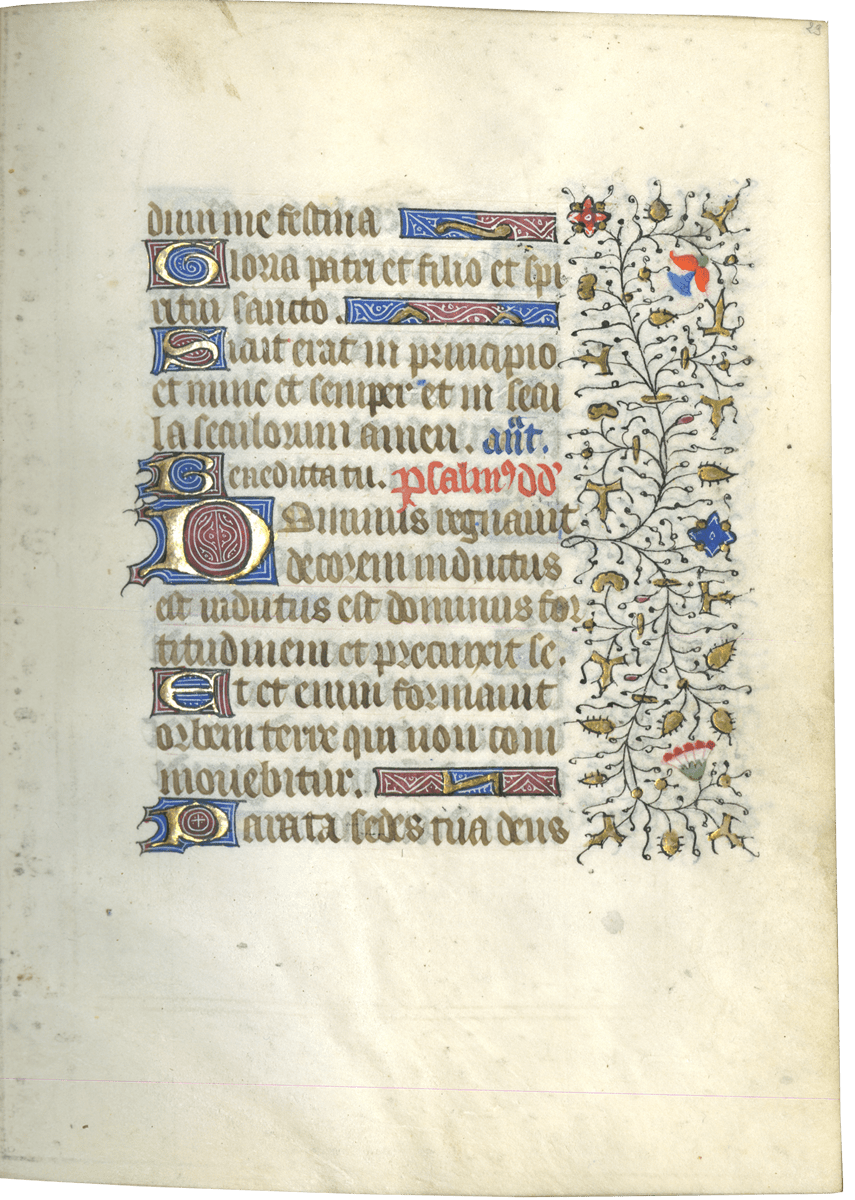 23
dium me festina
Gloria patri et filio et spi
ritui sancto.
Sicut erat in principio
et nunc et semper et in secu
la seculorum amen. añt.
Benedicta tu. psalmꝰ dd'
Dominus regnauit
decorem indutus
est indutus est dominus for
titudinem et precinxit se.
Et et enim formauit
orbem terre qui non com
mouebitur.
Parata sedes tua deus